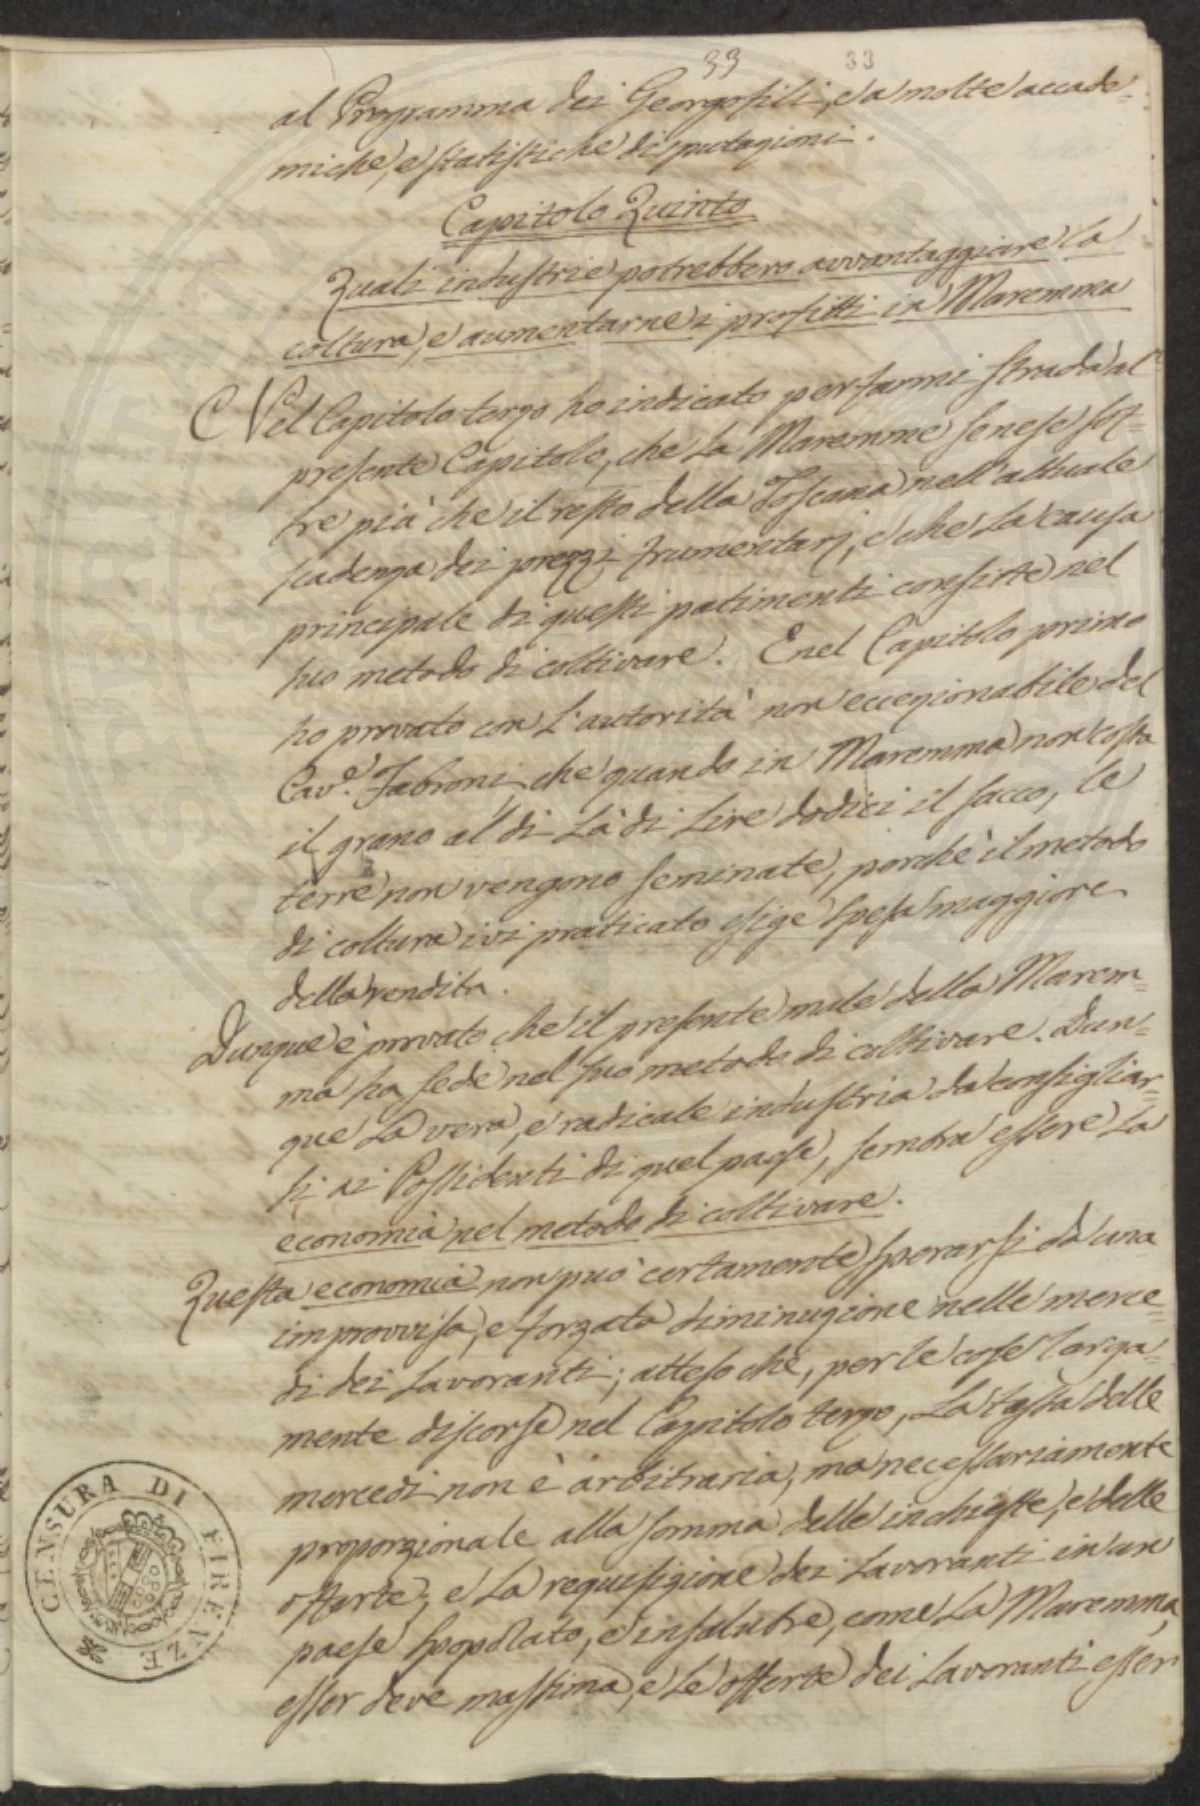 33 33
al Programma dei Georgofili, e a molte accade=
miche, e statistiche disputazioni.
Capitolo Quinto
Quali industrie potrebbero avvantaggiare la
coltura, e aumentarne i profitti in Maremma
Nel Capitolo terzo ho indicato per farmi strada al
presente Capitolo, che La Maremme senese sof=
fre più che il resto della Toscana nell'attuale
scadenza dei prezzi frumentarj, e che La causa
principale di questi patimenti consiste nel
suo metodo di coltivare. E nel Capitolo primo
ho provato con L'autorità non eccezionabile del
Cav.e Fabroni che quando in Maremma non costa
il grano al di Là di Lire dodici il sacco, le
terre non vengono seminate, perchè il metodo
di coltura ivi praticato esige spesa maggiore
della rendita.
Dunque è provato che il presente male della Marem=
ma ha sede nel suo metodo di coltivare. Dun=
que La vera, e radicale industria da consigliar=
si ai Possidenti di quel paese, sembra essere La
economia nel metodo di coltivare.
Questa economia non può certamente sperarsi da una
improvvisa, e forzata diminuzione nelle merce=
di dei Lavoranti; atteso che, per le cose larga=
mente discorse nel Capitolo terzo, La tassa delle
mercedi non è arbitraria, ma necessariamente
proporzionale alla somma delle inchieste, e delle
offerte; e La requisizione dei Lavoranti in un
paese spopolato, e insalubre, come La Maremma,
esser deve massima, e Le offerte dei Lavoranti esser
CENSURA DI FIRENZE